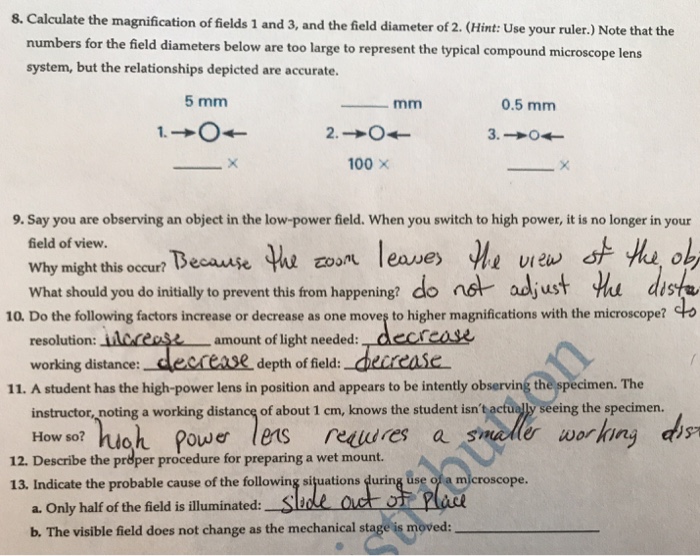 8. Calculate the magnification of fields 1 and 3, and the field diameter of 2. (Hint: Use your ruler.) Note that the
numbers for the field diameters below are too large to represent the typical compound microscope lens
system, but the relationships depicted are accurate.
5 mm ____ mm 0.5 mm
1. →O← 2. →O← 3. →O←
____ × 100 × ____ ×
9. Say you are observing an object in the low-power field. When you switch to high power, it is no longer in your
field of view.
Why might this occur? Because the zoom leaves the view of the obj
What should you do initially to prevent this from happening? do not adjust the dista
10. Do the following factors increase or decrease as one moves to higher magnifications with the microscope? to
resolution: increase amount of light needed: decrease
working distance: decrease depth of field: decrease
11. A student has the high-power lens in position and appears to be intently observing the specimen. The
instructor, noting a working distance of about 1 cm, knows the student isn't actually seeing the specimen.
How so? high power lens requires a smaller working dis
12. Describe the proper procedure for preparing a wet mount.
13. Indicate the probable cause of the following situations during use of a microscope.
a. Only half of the field is illuminated: slide out of place
b. The visible field does not change as the mechanical stage is moved: ____
istribution